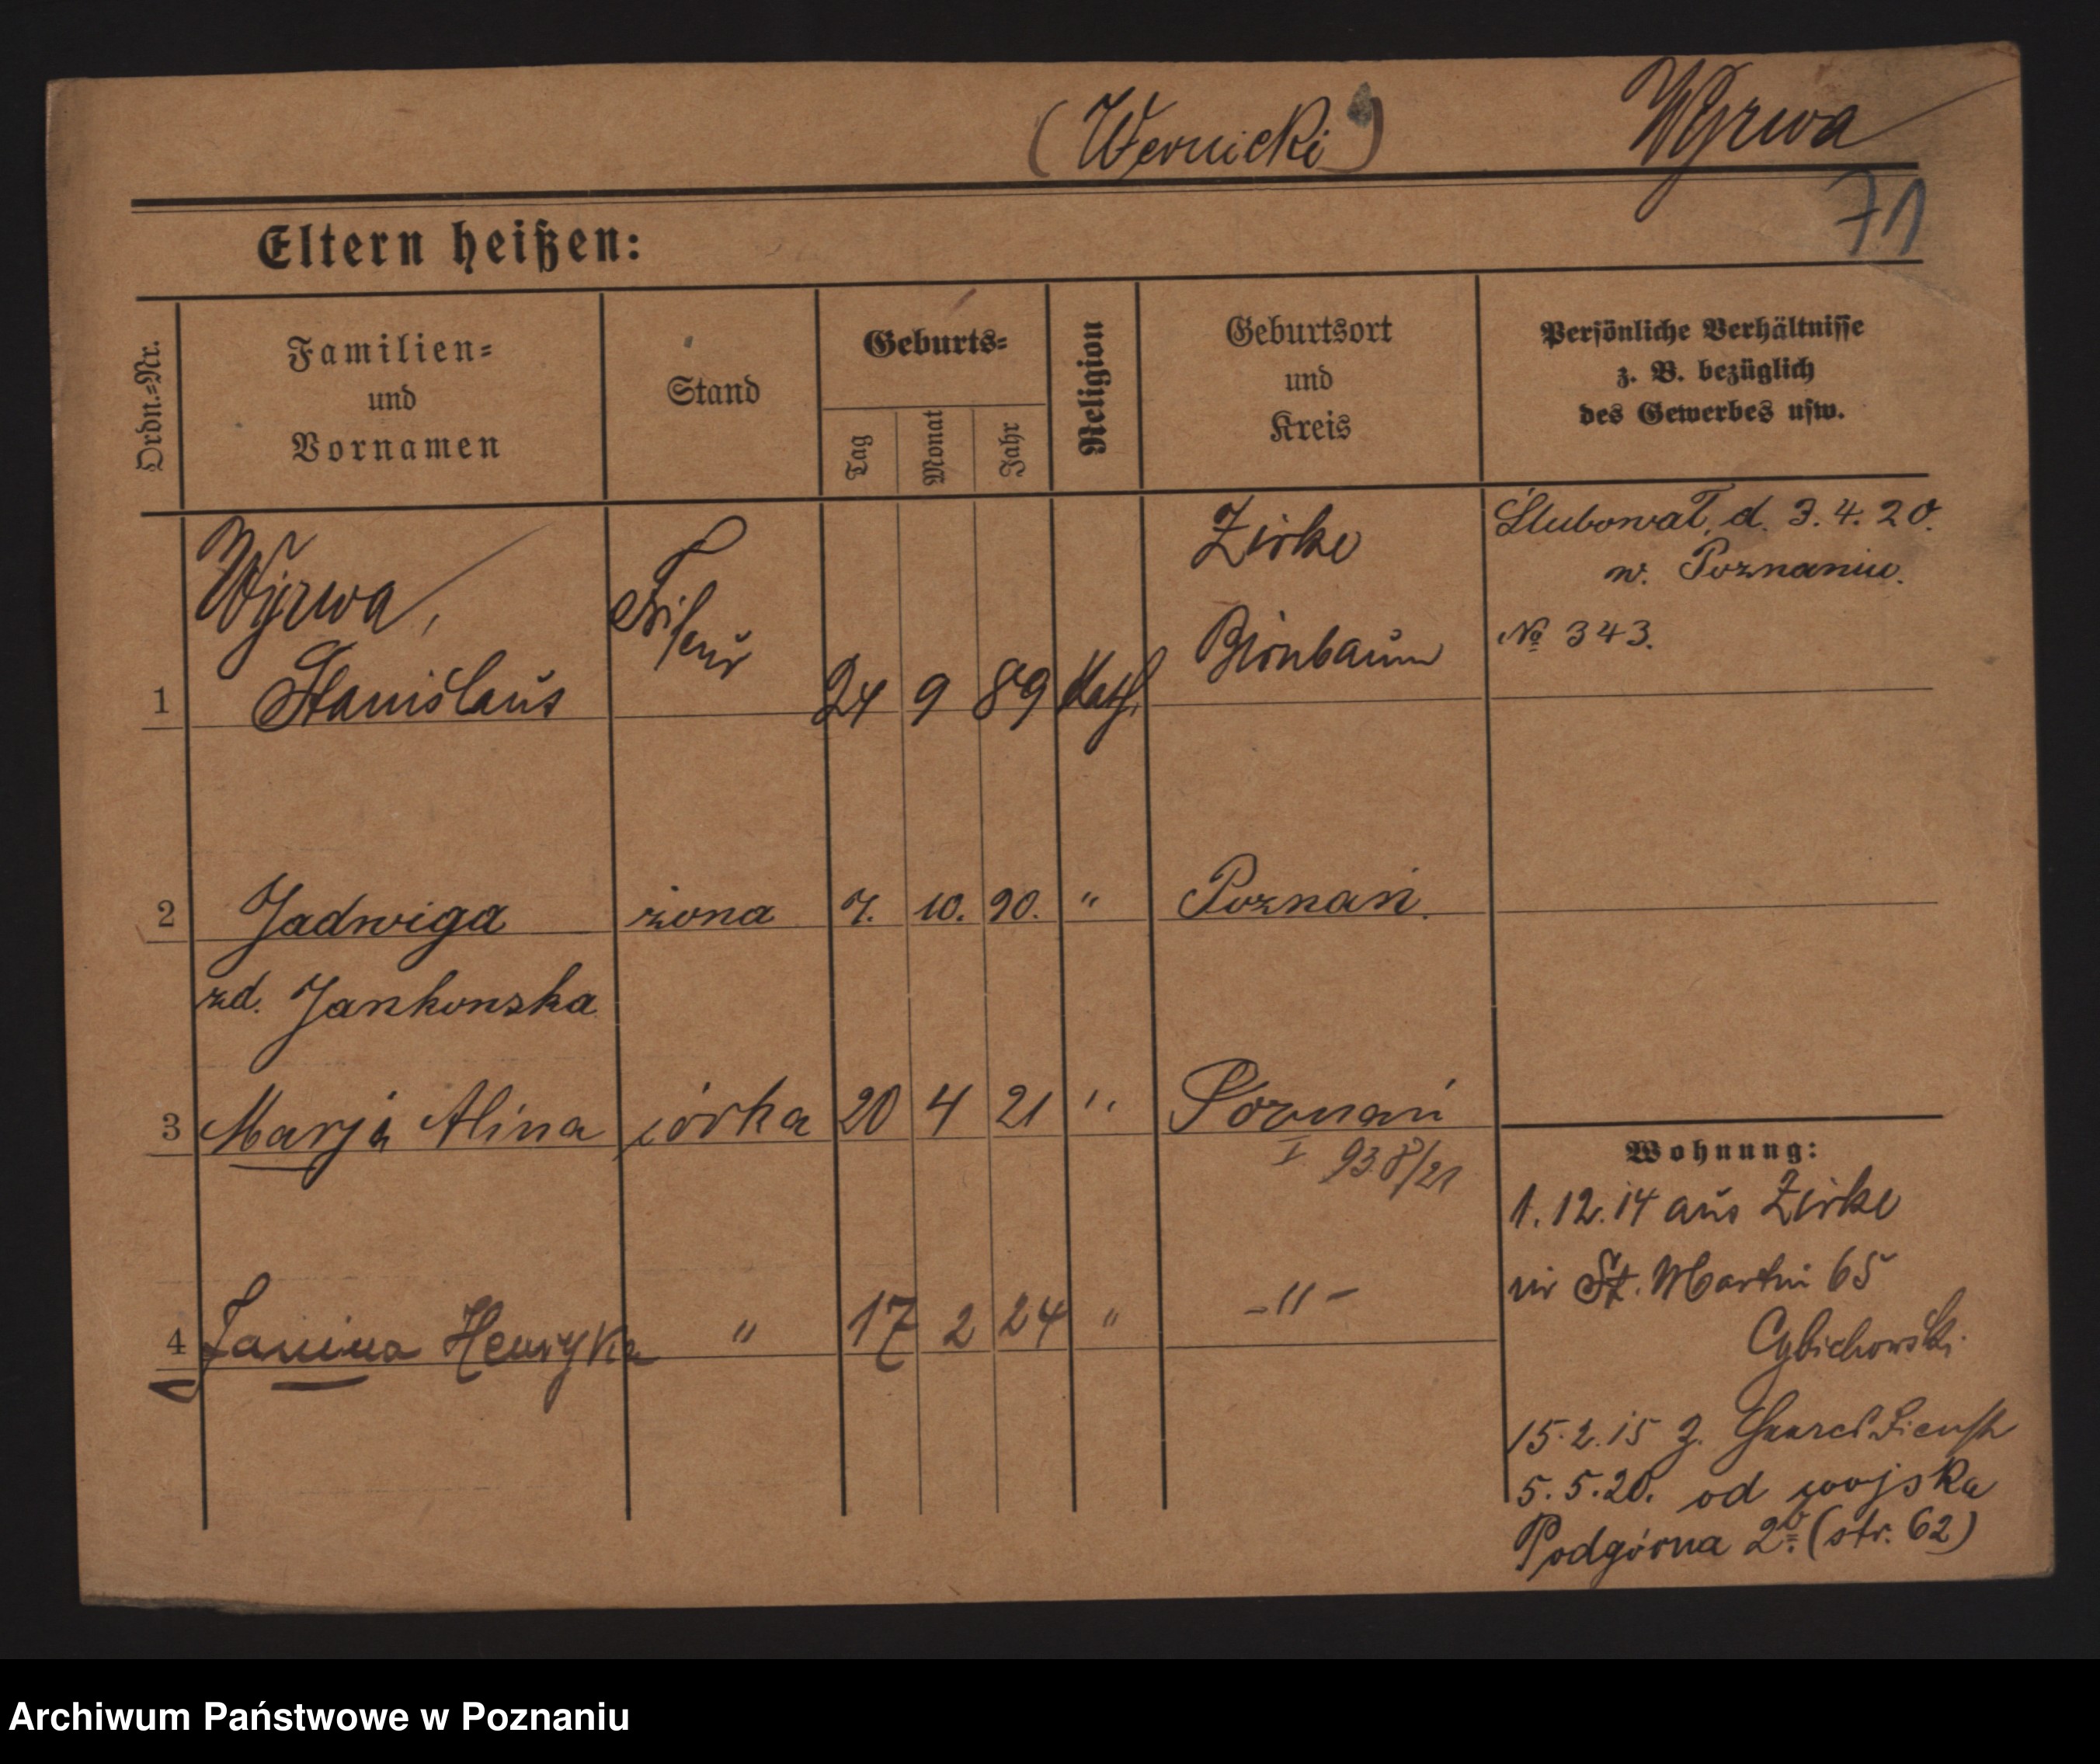 (Wernicki) Wyrwa
71
Eltern heißen:
Ordn.=Nr.
Familien=
und
Vornamen
Stand
Geburts=
Tag
Monat
Jahr
Religion
Geburtsort
und
Kreis
Persönliche Verhältnisse
z. B. bezüglich
des Gewerbes usw.
Wyrwa,
1 Stanislaus Friseur 24 9 89 Kath. Zirke
Birnbaum
Ślubował d. 3.4.20.
w. Poznaniu.
№ 343.
2 Jadwiga żona 7. 10. 90. " Poznań.
zd. Jankowska
3 Marja Alina córka 20 4 21 " Poznań
I 938/21
4 Janina Henryka " 17 2 24 " -"-
Wohnung:
1.12.14 aus Zirke
St. Martin 65
Cybichowski
15.2.15 z.
5.5.20. od wojska
Podgórna 2b. (str. 62)
Archiwum Państwowe w Poznaniu